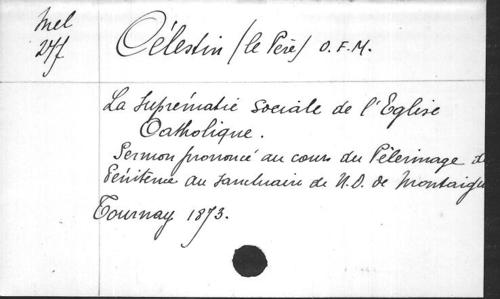 Mel
27f
Célestin (le Père) O.F.M.
La suprématie sociale de l'Eglise
Catholique.
Sermon prononcé au cours du Pèlerinage d
Pénitence au sanctuaire de N.D. de Montaigu
Tournay 1873.